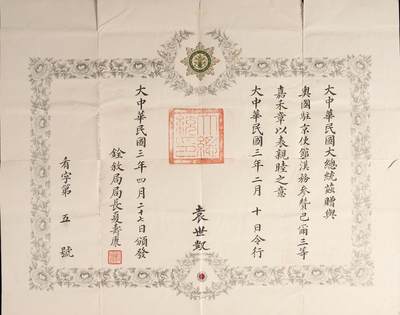 大中華民國大總統茲贈與
奧國駐京使館漢務參贊己甯三等
嘉禾章以表親睦之意
大中華民國三年二月 十 日令行
袁世凱
大中華民國三年四月二十七日頒發
銓敘局局長夏壽康
有字第 五 號